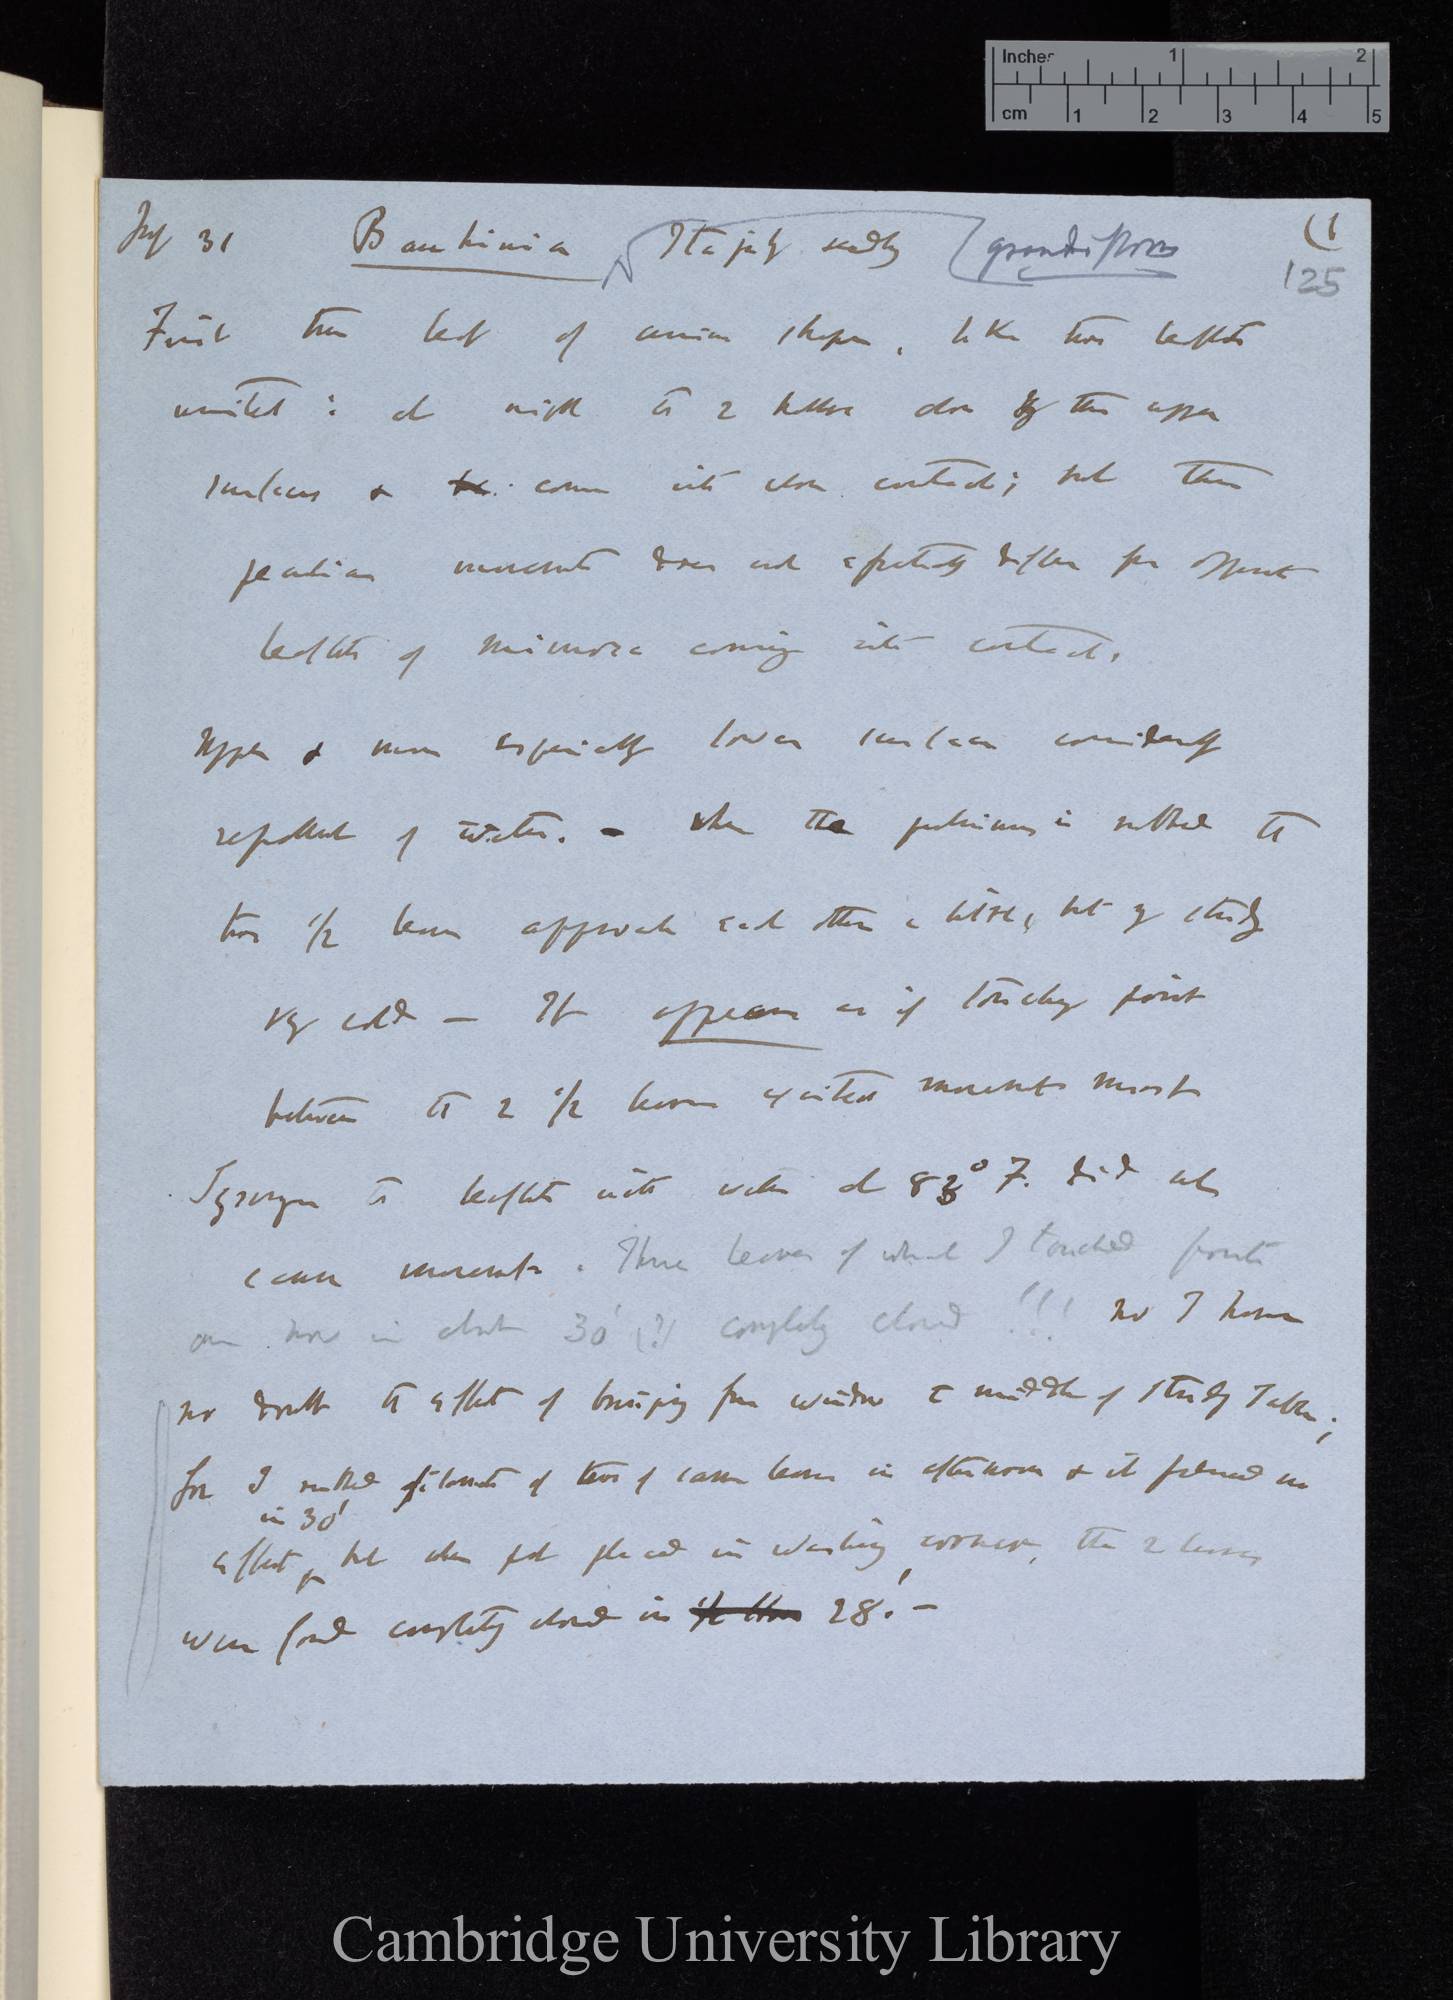 Inches 1 2
cm 1 2 3 4 5
(1
125
July 31 Bauhinia seedling (grandiflora
First true leaf of shape, like two leaflets
united: at night the 2 halves close by the upper
surfaces & the come into close contact; but this
peculiar movement does not apparently differ from opposite
leaflets of Mimosa coming into contact.
Upper & more especially lower surface considerably
repellent of water. — when the pulvinus is rubbed the
two 1/2 leaves approach each other a little, but my study
very cold — It appears as if touching point
between the 2 1/2 leaves excited movement most
Syringing the leaflets with water at 83° F. did not
cause movement. Three leaves of which I touched points
are now in about 30' (?) completely closed!!! no I have
no doubt the effect of bringing from window to middle of study Table;
for I rubbed filaments of two of same leaves in afternoon & it produced no
in 30'
effect, but when pot placed in corner, the 2 leaves
were found completely closed in 1/2 hour 28'. —
Cambridge University Library